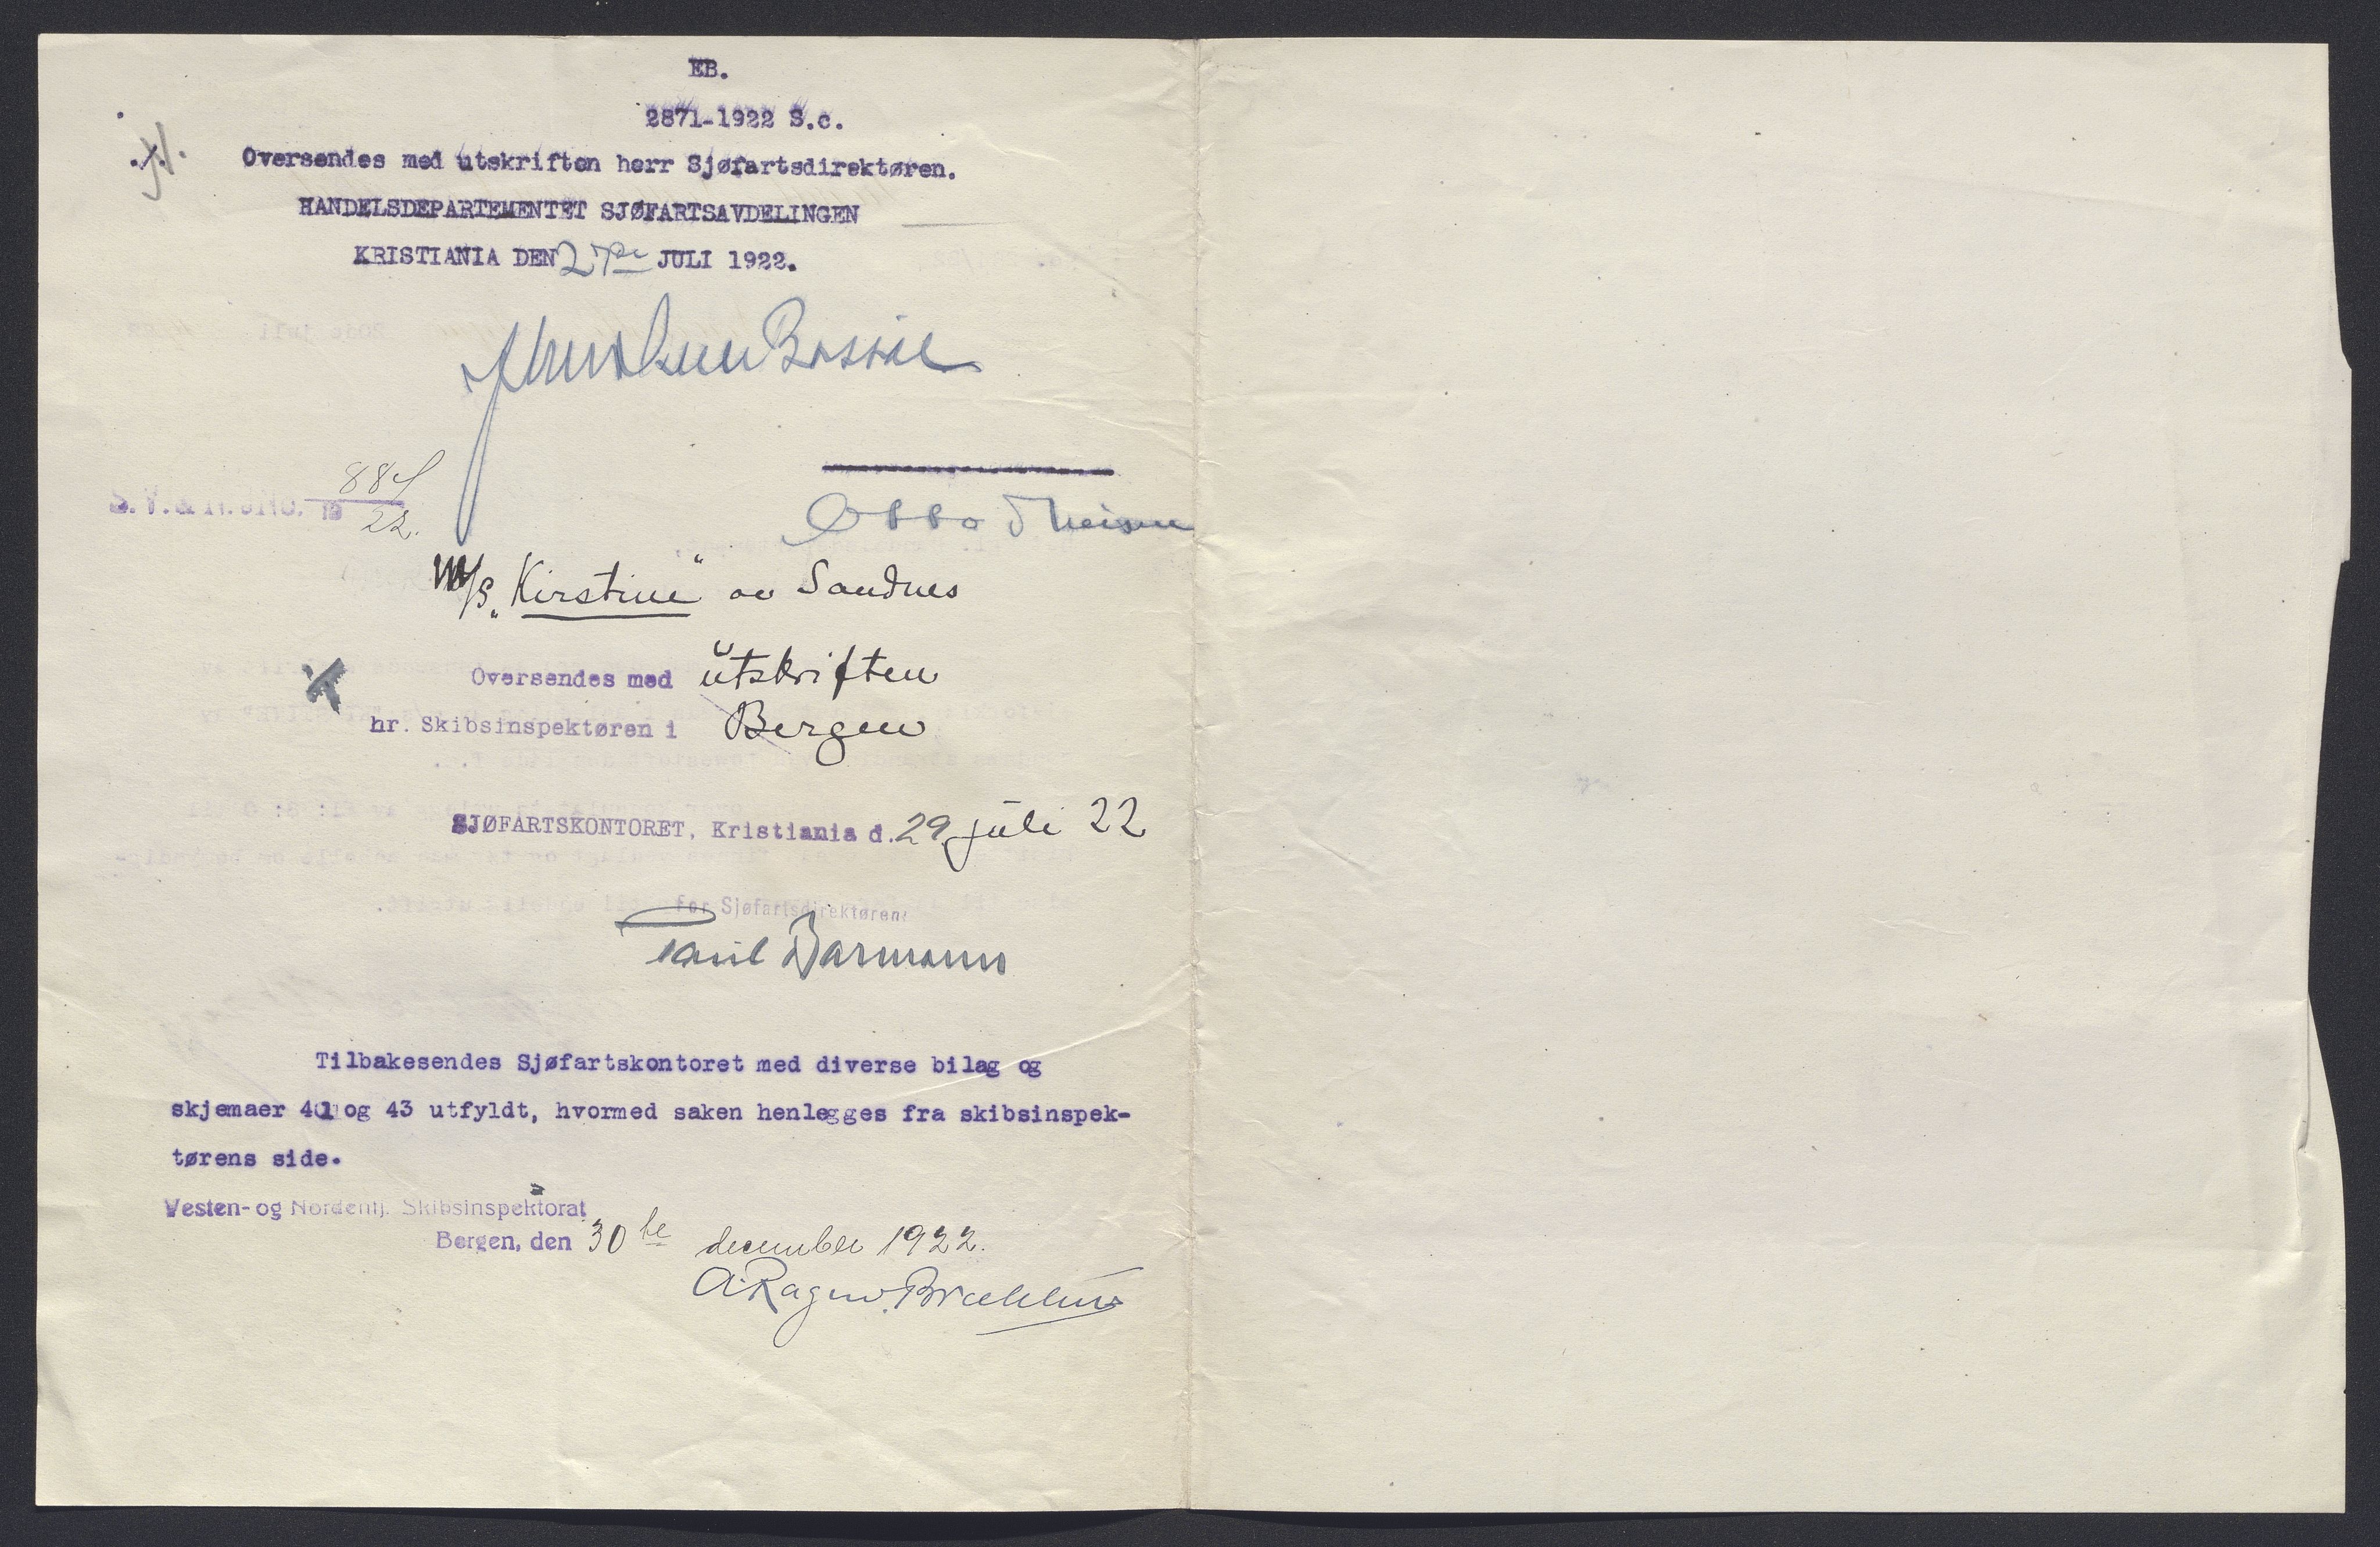 EB.
2871-1922 S.c.
Oversendes med utskriften herr Sjøfartsdirektøren.
HANDELSDEPARTEMENTET SJØFARTSAVDELINGEN
KRISTIANIA DEN 27de JULI 1922.
884
S.V. & N. JNO. 19 22.
Otto Theisen
M/S. "Kirstine" av Sandnes
Oversendes med utskriften
hr. Skibsinspektøren i Bergen
SJØFARTSKONTORET, Kristiania d. 29 juli 22
for Sjøfartsdirektøren:
Paul Barmann
Tilbakesendes Sjøfartskontoret med diverse bilag og
skjemaer 41 og 43 utfyldt, hvormed saken henlegges fra skibsinspek-
tørens side.
Vesten- og Nordenfj. Skibsinspektorat
Bergen, den 30te december 1922.
A. Ragnv.